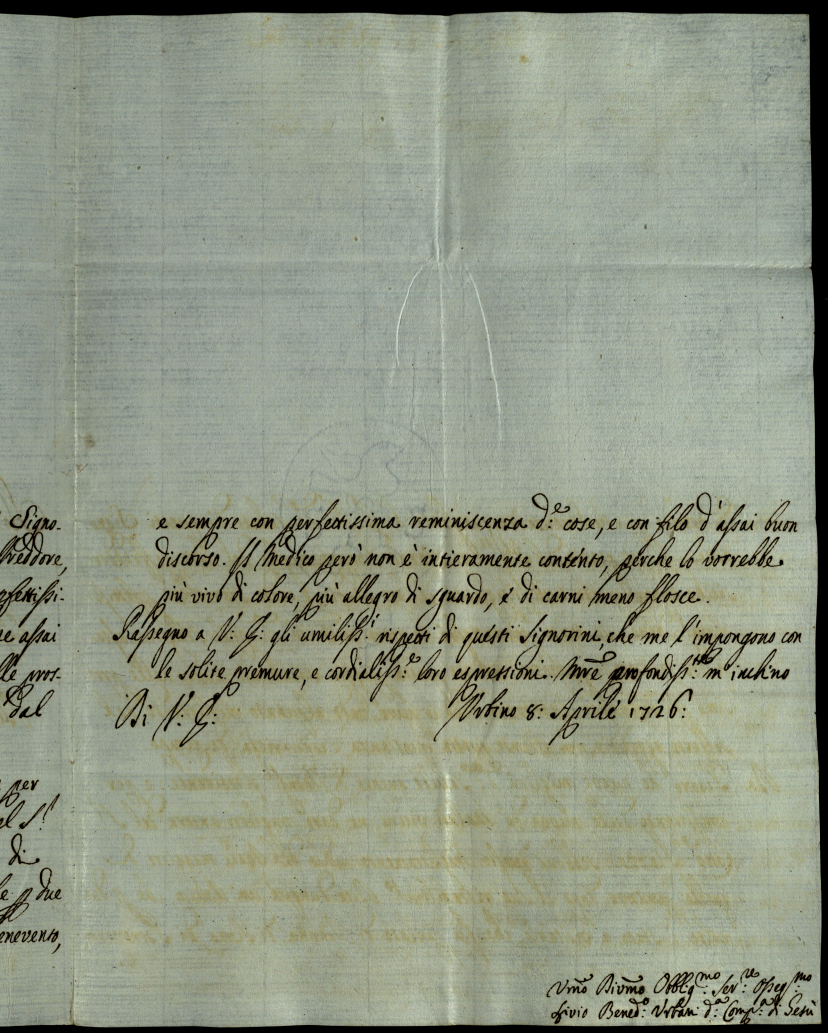 Signo-
Preddore,
rfettissi-
ne assai
lle pros-
dal
per
el S.r
di
le p due
enevento,
e sempre con perfettissima reminiscenza d.e cose, e con filo d'assai buon
discorso. Il Medico però non è intieramente contento, perche lo vorrebbe
più vivo di colore, più allegro di sguardo, e di carni meno flosce.
Rassegno a V: E: gli umiliss.i rispetti di questi Signorini, che me l'impongono con
le solite premure, e cordialiss.e loro espressioni. Mre profondiss.te m'inchino
Di V: E: Urbino 8: Aprile 1726:
Vmo Divmo Obblig.mo Ser.re Osseq.mo
Livio Bened.o Urban d.a Comp.a di Gesù